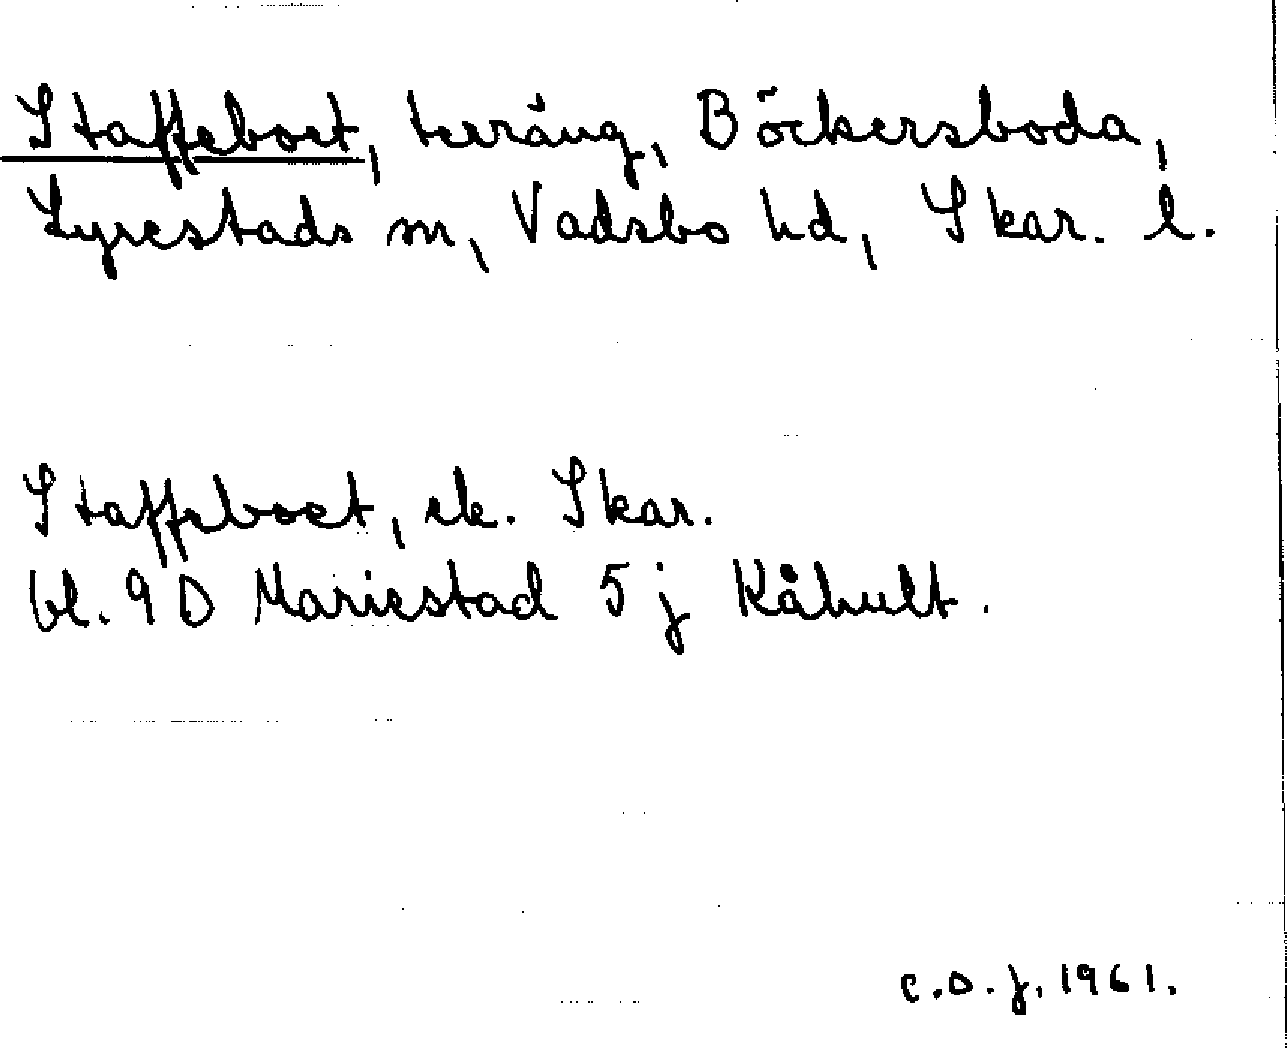 Staffeboet, terräng, Böckersboda,
Lyrestads sn, Vadsbo hd, Skar. l.
Staffeboet, ek. Skar.
bl. 9 D Mariestad 5 j Kåhult.
C.O.J. 1961.